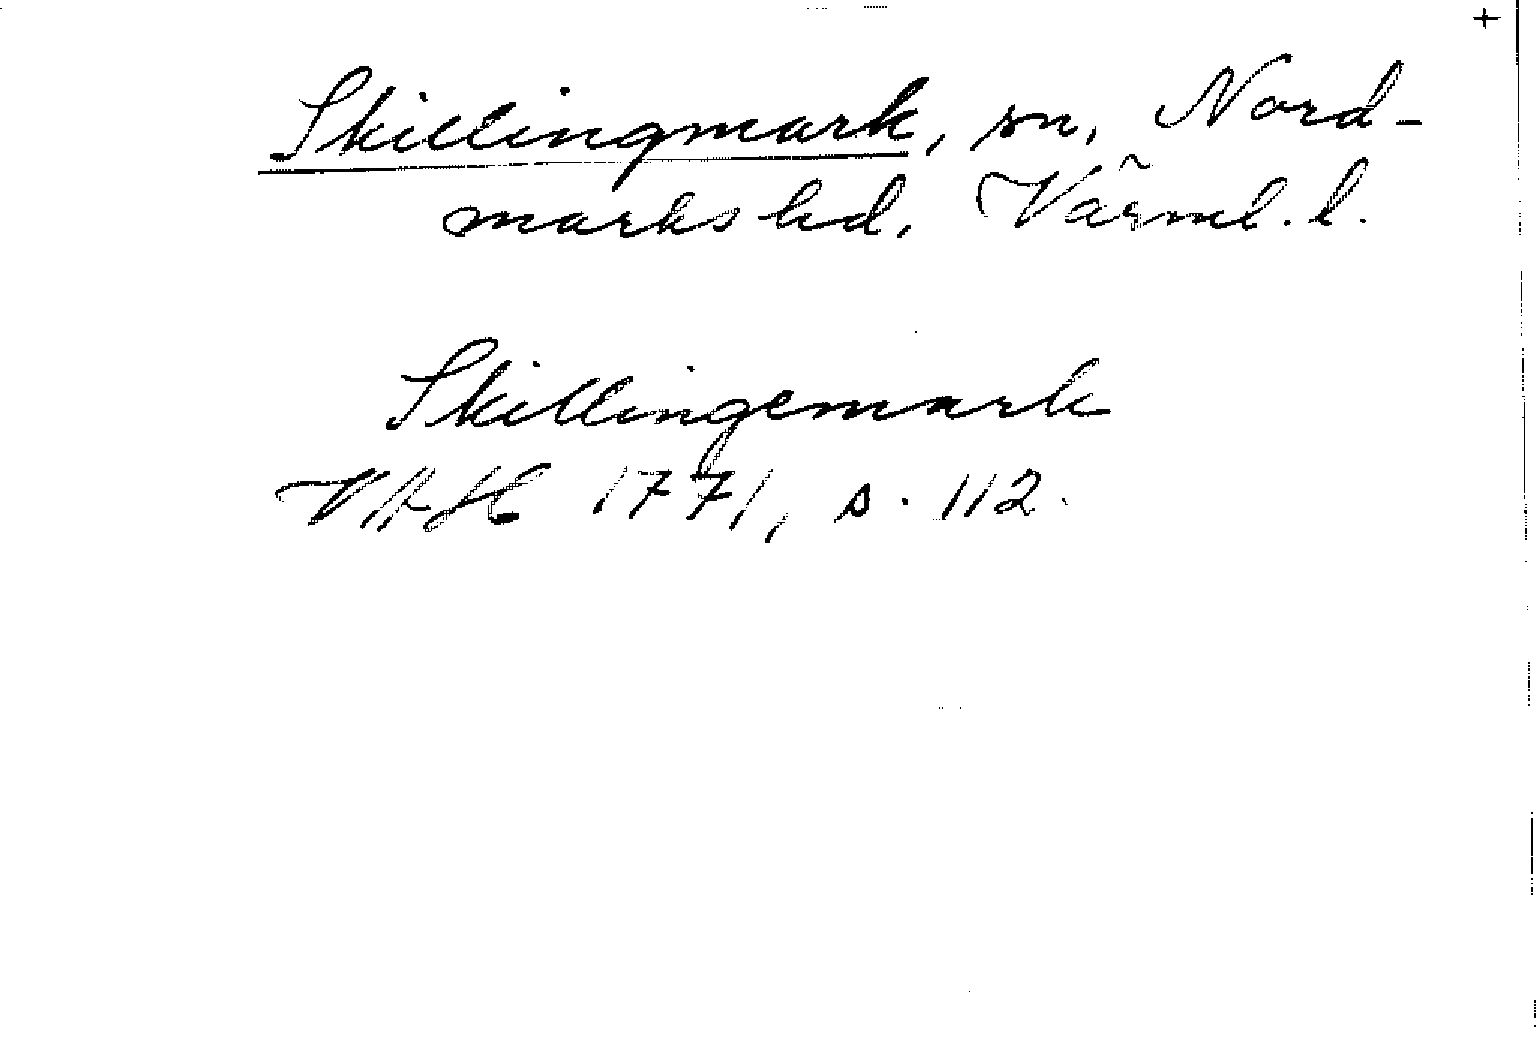 +
Skillingmark, sn, Nord-
marks hd. Värml. l.
Skillingemark
VAH 1771, s. 112.